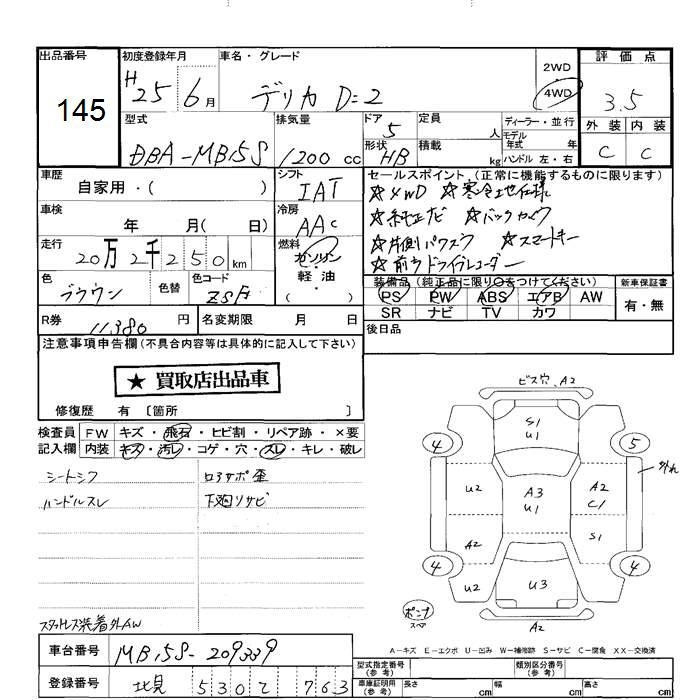 出品番号
145
初度登録年月
H
25 6月
車名・グレード
デリカ D:2
2WD
4WD
評価点
3.5
外装 内装
C C
型式
DBA-MB15S
排気量
1200 cc
ドア
5
形状
HB
定員
人
積載
kg
ディーラー・並行
モデル
年式 年
ハンドル 左・右
車歴
自家用・( )
シフト
IAT
車検
年 月( 日)
冷房
AAC
走行
20万2千250km
燃料
ガソリン
軽・油
( )
色
ブラウン
色替
色コード
R券
11,380 円
名変期限 月 日
セールスポイント (正常に機能するものに限ります)
☆4WD ☆寒冷地仕様
☆純正ナビ ☆バックカメラ
☆片側パワスラ ☆スマートキー
☆前方ドライブレコーダー
装備品(純正品に限り○をつけてください)
PS PW ABS エアB AW
SR ナビ TV カワ
新車保証書
有・無
後日品
注意事項申告欄(不具合内容等は具体的に記入して下さい)
★ 買取店出品車
修復歴 有〔箇所 〕
検査員
記入欄
FW キズ・飛石・ヒビ割・リペア跡・×要
内装 キズ・汚レ・コゲ・穴・スレ・キレ・破レ
シートシワ
ハンドルスレ
ロアサポ歪
下廻リサビ
スタッドレス装着 外AW
ビス穴、A2
S1
U1
4
5
外れ
U2
A3
U1
A2
C1
A2
S1
4
4
U2
U3
U2
ポンプ
スペア
A2
A-キズ E-エクボ U-凹み W-補修跡 S-サビ C-腐食 XX-交換済
車台番号
MB15S-209339
登録番号
北見 530 て 763
型式指定番号
(参考)
類別区分番号
(参考)
車庫証明用
(参考)
長さ cm
幅 cm
高さ cm